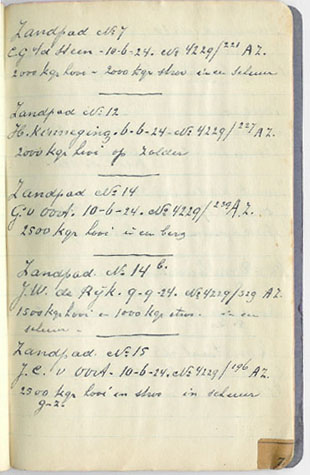 Zandpad No 7
C.G. v/d Steen - 10-6-24. No 4229/221 A.Z.
2000 kgr hooi - 2000 kgr stroo in een schuur
Zandpad No 12
H. 6-6-24. No 4229/227 A.Z.
2000 kgr hooi op zolder
Zandpad No 14
G. v Oort. 10-6-24. No 4229/230 A.Z.
2500 kgr hooi in een berg
Zandpad No 14 b.
J.W. de Rijk. 9-9-24. No 4229/329 A.Z.
1500 kgr hooi en 1000 kgr stroo - in een
schuur -
Zandpad No 15
J.C. v Oort. 10-6-24. No 4229/196 A.Z.
2300 kgr hooi en stroo in schuur
7